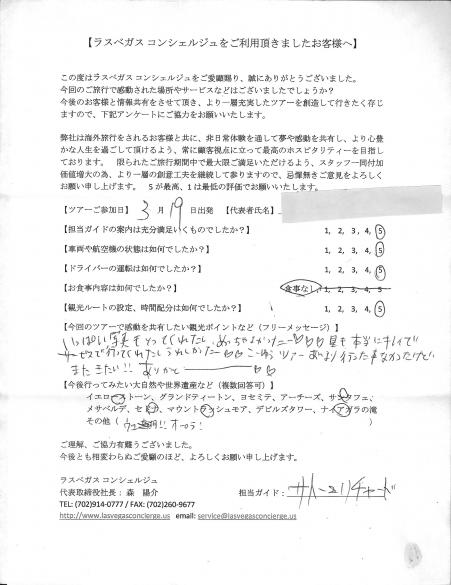 【ラスベガス コンシェルジュをご利用頂きましたお客様へ】
この度はラスベガス コンシェルジュをご愛顧賜り、誠にありがとうございました。
今回のご旅行で感動された場所やサービスなどはございましたでしょうか？
今後のお客様と情報共有をさせて頂き、より一層充実したツアーを創造して行きたく存じ
ますので、下記アンケートにご協力をお願いいたします。
弊社は海外旅行をされるお客様と共に、非日常体験を通して夢や感動を共有し、より心豊
かな人生を過ごして頂けるよう、常に顧客視点に立って最高のホスピタリティーを目指し
ております。 限られたご旅行期間中で最大限ご満足いただけるよう、スタッフ一同付加
価値増大の為、より一層の創意工夫を継続して参りますので、忌憚無きご意見をよろしく
お願い申し上げます。 5が最高、1は最低の評価でお願いいたします。
【ツアーご参加日】 3 月 19 日出発 【代表者氏名】
【担当ガイドの案内は充分満足いくものでしたか？】 1, 2, 3, 4, 5
【車両や航空機の状態は如何でしたか？】 1, 2, 3, 4, 5
【ドライバーの運転は如何でしたか？】 1, 2, 3, 4, 5
【お食事内容は如何でしたか？】 食事なし, 1, 2, 3, 4, 5
【観光ルートの設定、時間配分は如何でしたか？】 1, 2, 3, 4, 5
【今回のツアーで感動を共有したい観光ポイントなど（フリーメッセージ）】
いっぱい写真もとってくれたし、めっちゃよかったー♡♡♡星も本当にキレイで
サービスで行ってくれたしうれしかったー♡♡ こーゆうツアーあまり行った事なかったけど
またきたい!! ありがとー♡♡
【今後行ってみたい大自然や世界遺産など（複数回答可）】
イエローストーン、グランドティートン、ヨセミテ、アーチーズ、サンタフェ、
メサベルデ、セドナ、マウントラッシュモア、デビルズタワー、ナイアガラの滝
その他（ !! オーロラ！
ご理解、ご協力有難うございました。
今後とも相変わらぬご愛顧のほど、よろしくお願い申し上げます。
ラスベガス コンシェルジュ
代表取締役社長： 森 陽介 担当ガイド： サトーユリチャード
TEL: (702)914-0777 / FAX: (702)260-9677
http://www.lasvegasconcierge.us email: service@lasvegasconcierge.us